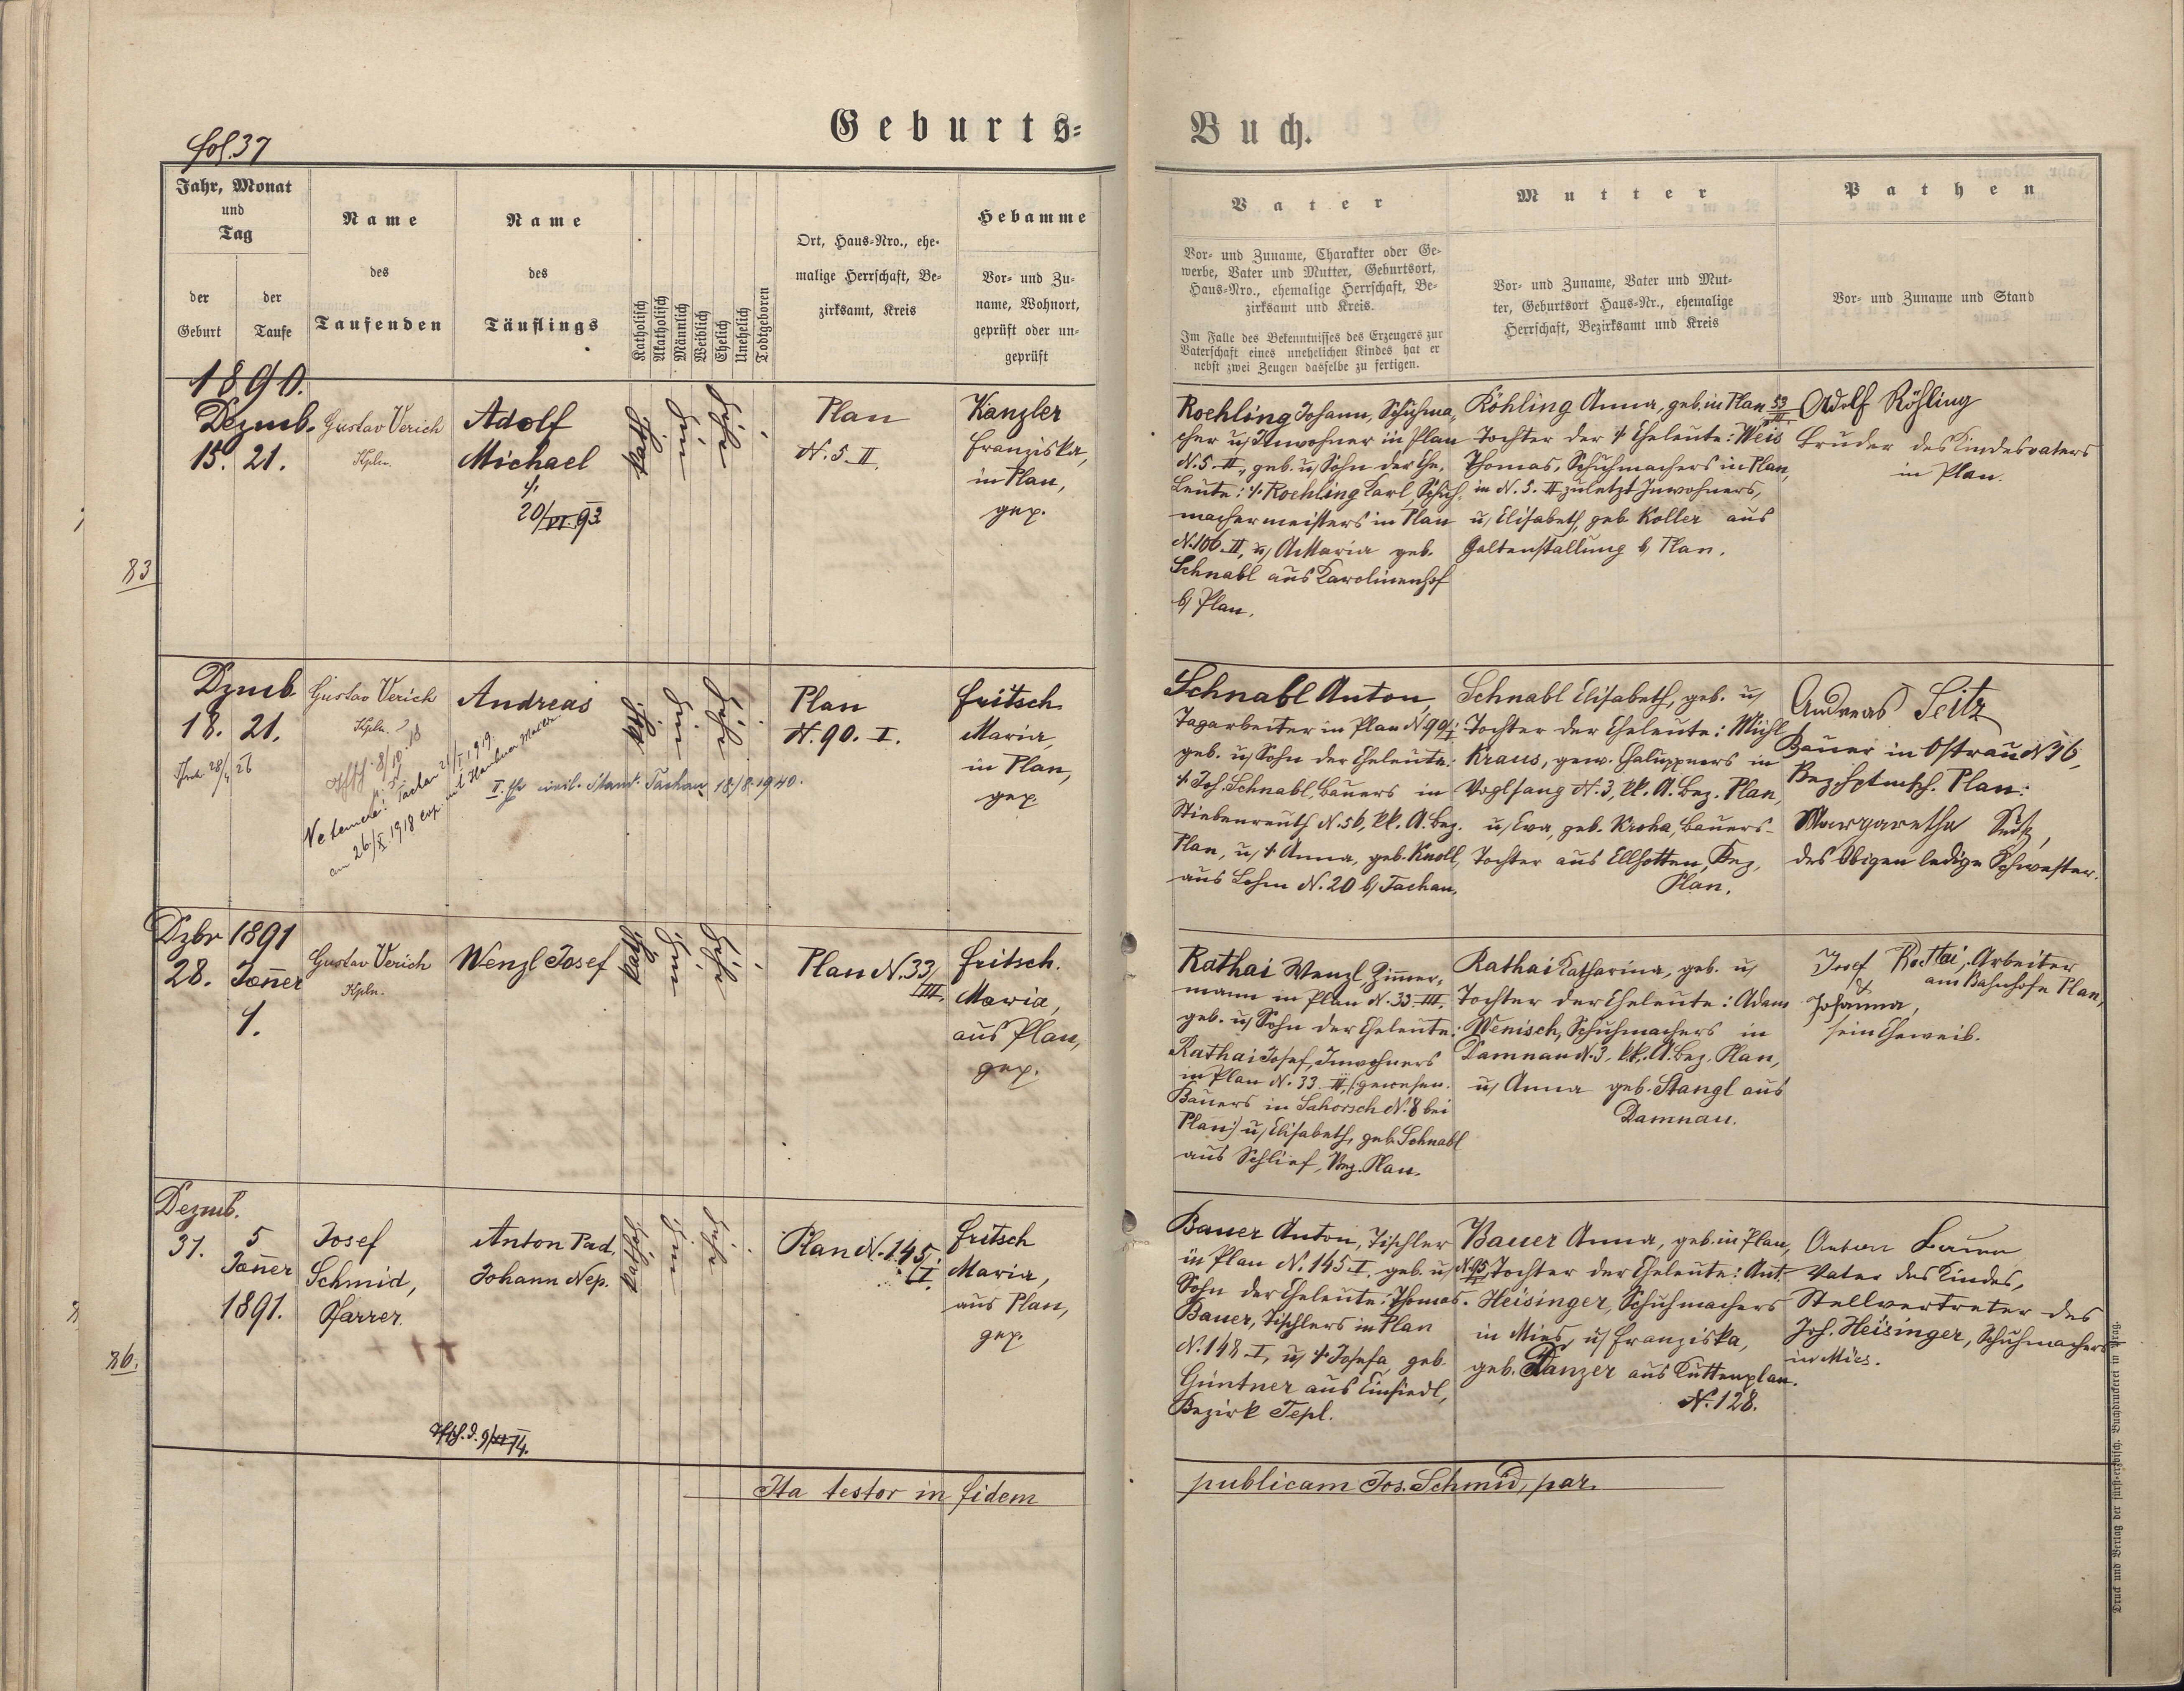 fol. 37
Geburts-
Buch.
Jahr, Monat
und
Tag
der
Geburt
der
Taufe
Name
des
Taufenden
Name
des
Täuflings
Katholisch
Akatholisch
Männlich
Weiblich
Ehelich
Unehelich
Todtgeboren
Ort, Haus-Nro., ehe-
malige Herrschaft, Be-
zirksamt, Kreis
Hebamme
Vor- und Zu-
name, Wohnort,
geprüft oder un-
geprüft
Vater
Vor- und Zuname, Charakter oder Ge-
werbe, Vater und Mutter, Geburtsort,
Haus-Nro., ehemalige Herrschaft, Be-
zirksamt und Kreis.
Im Falle des Bekenntnisses des Erzeugers zur
Vaterschaft eines unehelichen Kindes hat er
nebst zwei Zeugen dasselbe zu fertigen.
Mutter
Vor- und Zuname, Vater und Mut-
ter, Geburtsort Haus-Nr., ehemalige
Herrschaft, Bezirksamt und Kreis
Pathen
Vor- und Zuname und Stand
83
1890.
Dezmb.
15. 21.
Gustav Verich
Kpln.
Adolf
Michael
20/VI. 93
Plan
N. 5 II.
Kanzler
Franziska,
in Plan,
gep.
Roehling Johann, Schuhma-
cher u/ Inwohner in Plan
N. 5 II, geb. u/ Sohn der Ehe-
leute: Roehling Karl, Schuh-
machermeisters in Plan
N. 106 II, u/ A. Maria geb.
Schnabl aus Karolinenhof
b/ Plan.
Röhling Anna, geb. in Plan 53/III,
Tochter der Eheleute: Weis
Thomas, Schuhmachers in Plan,
in N. 5. II zuletzt Inwohners,
u/ Elisabeth, geb. Koller aus
Galtenstallung b/ Plan.
Adolf Röhling
Bruder des Kindesvaters
in Plan.
Dzmb
18. 21.
Gustav Verich
Kpln.
Andreas
Ne temere! Tachau 21/I. 1919.
am 26./X. 1918
II. Ehe civil. Stand. Tachau 18/8. 1940.
Plan
N. 90. I.
Fritsch
Maria,
in Plan,
gep
Schnabl Anton,
Tagarbeiter in Plan N. 90/I
geb. u/ Sohn der Eheleute:
Joh. Schnabl, Bauers in
Stiebenreuth N. 56, kk. A. Bez.
Plan, u/ Anna, geb. Knoll,
aus Lohm N. 20 b/ Tachau.
Schnabl Elisabeth, geb. u/
Tochter der Eheleute: Michl
Kraus, gew. Chaluppners in
Voglsang N. 3, kk. A. Bez. Plan,
u/ Eva, geb. Kroha, Bauers-
Tochter aus Ellhotten, Bez.
Plan.
Andreas Seitz
Bauer in Ostrau N 36,
Bez. Hptmsch. Plan:
Margaretha Seitz,
des Obigen ledige Schwester.
Dzbr 1891
28. Jänner
1.
Gustav Verich
Kpln.
Wenzl Josef
Plan N. 33/III.
Fritsch.
Maria,
aus Plan,
gep.
Rathai Wenzl, Zimmer-
mann in Plan N. 33 III,
geb. u/ Sohn der Eheleute:
Rathai Josef, Inwohners
in Plan N. 33 II, (gewesen.
Bauers in Sahorsch N. 8 bei
Plan) u/ Elisabeth, geb. Schnabl
aus Schlief, Bez. Plan.
Rathai Katharina, geb. u/
Tochter der Eheleute: Adam
Wenisch, Schuhmachers in
Damnau N. 3, kk. A. Bez. Plan,
u/ Anna geb. Stangl aus
Damnau.
Josef Rathai, Arbeiter
am Bahnhofe Plan,
&
Johanna,
sein Eheweib.
86.
Dezmb.
31. 5
Jänner
1891.
Josef
Schmid,
Pfarrer.
Anton Pad.
Johann Nep.
Plan N. 145/I.
Fritsch
Maria,
aus Plan,
gep.
Bauer Anton, Tischler
in Plan N. 145 I, geb. u/
Sohn der Eheleute: Thomas
Bauer, Tischlers in Plan
N. 148 I, u/ Josefa, geb.
Güntner aus Einsiedl,
Bezirk Tepl.
Bauer Anna, geb. in Plan,
Tochter der Eheleute: Ant.
Heisinger, Schuhmachers
in Mies, u/ Franziska,
geb. Danzer aus Kuttenplan.
N. 128.
Anton Bauer
Vater des Kindes,
Stellvertreter des
Joh. Heisinger, Schuhmachers
in Mies.
Ita testor in fidem
publicam Jos. Schmid, par.
Druck und Verlag der fürst-erzbisch. Buchdruckerei in Prag.